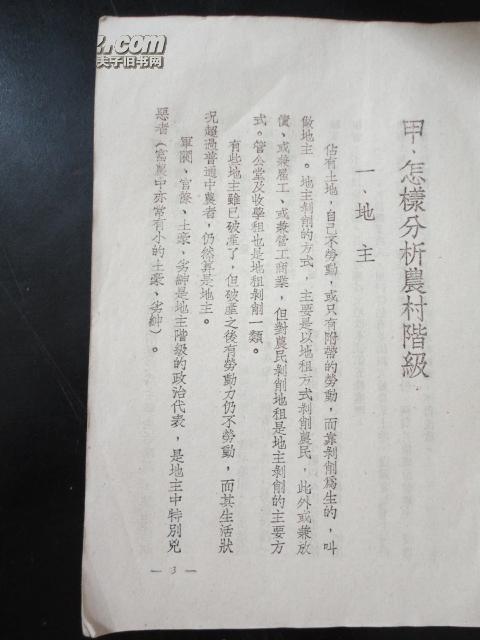 甲、怎樣分析農村階級
一、地主
佔有土地，自己不勞動，或只有附帶的勞動，而靠剝削爲生的，叫
做地主。地主剝削的方式，主要是以地租方式剝削農民，此外或兼放
債、或兼雇工、或兼營工商業，但對農民剝削地租是地主剝削的主要方
式。管公堂及收學租也是地租剝削一類。
有些地主雖已破產了，但破產之後有勞動力仍不勞動，而其生活狀
況超過普通中農者，仍然算是地主。
軍閥、官僚、土豪、劣紳是地主階級的政治代表，是地主中特別兇
惡者（富農中亦常有小的土豪、劣紳）。
— 3 —
z.com
夫子旧书网